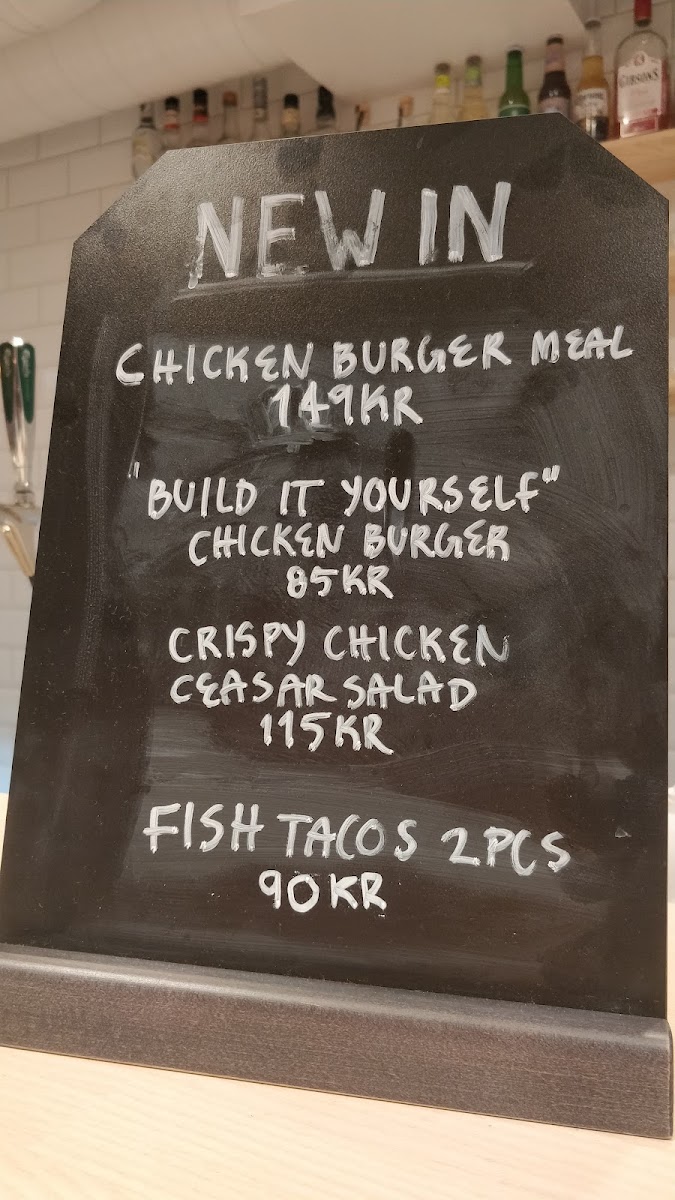 GIBSON'S
NEW IN
CHICKEN BURGER MEAL
149KR
"BUILD IT YOURSELF"
CHICKEN BURGER
85KR
CRISPY CHICKEN
CEASAR SALAD
115KR
FISH TACOS 2PCS
90KR